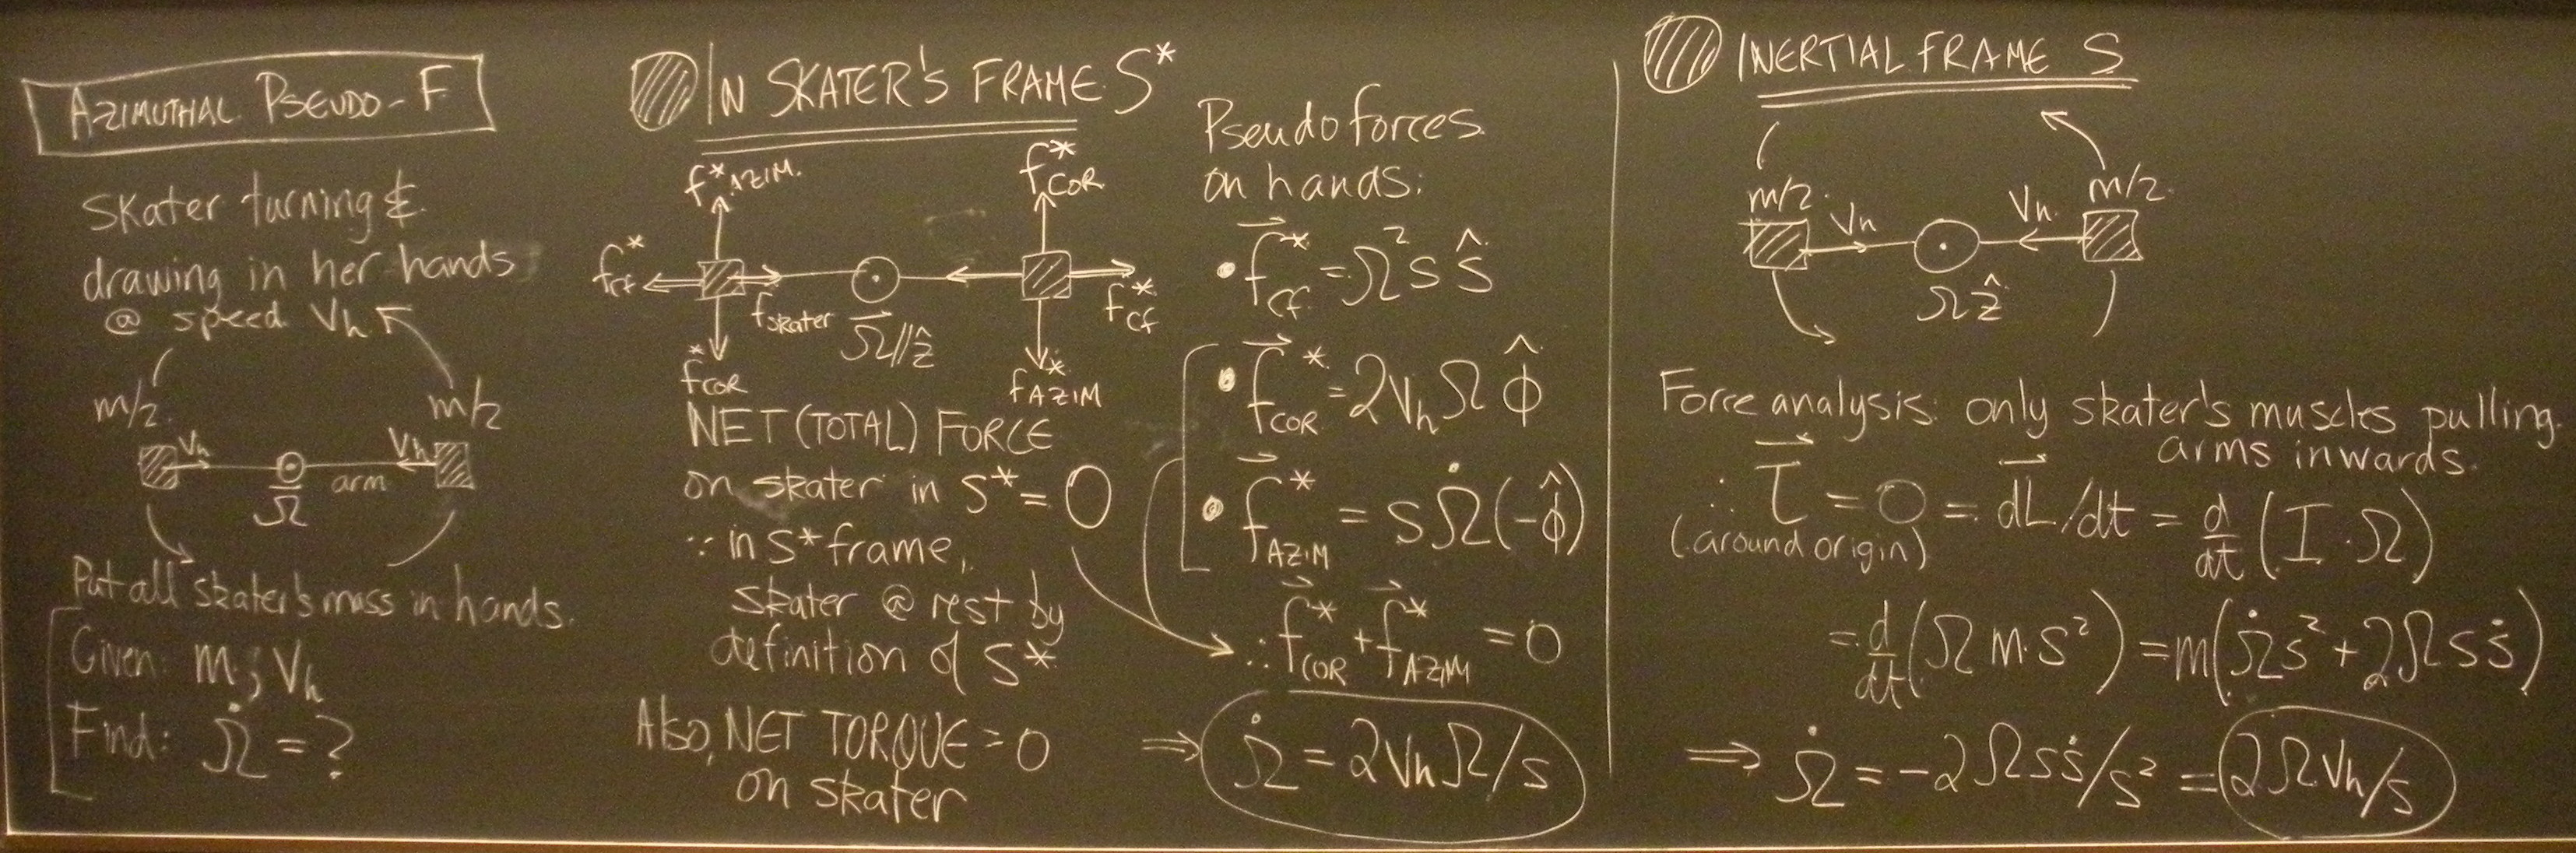 AZIMUTHAL PSEUDO-F
Skater turning &
drawing in her hands
@ speed Vh
m/2
m/2
Vh
Vh
arm
Ω
Put all skater's mass in hands.
Given: m, Vh
Find: Ω̇ = ?
IN SKATER'S FRAME S*
f*AZIM.
f*COR
f*cf
fskater
Ω⃗//ẑ
f*cf
f*COR
f*AZIM
NET (TOTAL) FORCE
on skater in S* = 0
∵ in S* frame,
skater @ rest by
definition of S*
Also, NET TORQUE = 0
on skater
Pseudo forces
on hands:
• f⃗*cf = Ω²s ŝ
• f⃗*COR = 2VhΩ φ̂
• f⃗*AZIM = sΩ̇(-φ̂)
∴ f⃗*COR + f⃗*AZIM = 0
⇒ Ω̇ = 2VhΩ/s
INERTIAL FRAME S
m/2
m/2
Vh
Vh
Ωẑ
Force analysis: only skater's muscles pulling
arms inwards.
∴ τ⃗ = 0 = dL⃗/dt = d/dt (I·Ω)
(around origin)
= d/dt (Ω m s²) = m(Ω̇s² + 2Ωsṡ)
⇒ Ω̇ = -2Ωsṡ/s² = 2ΩVh/s